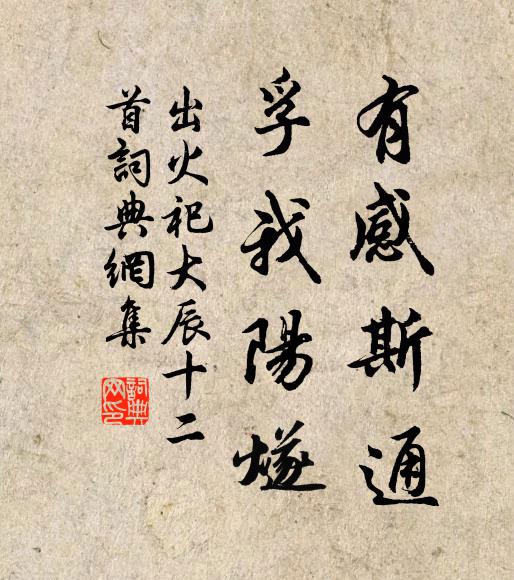 有感斯通
孚我陽燧
出火祀大辰十二
首詞典網集
詞典
网印